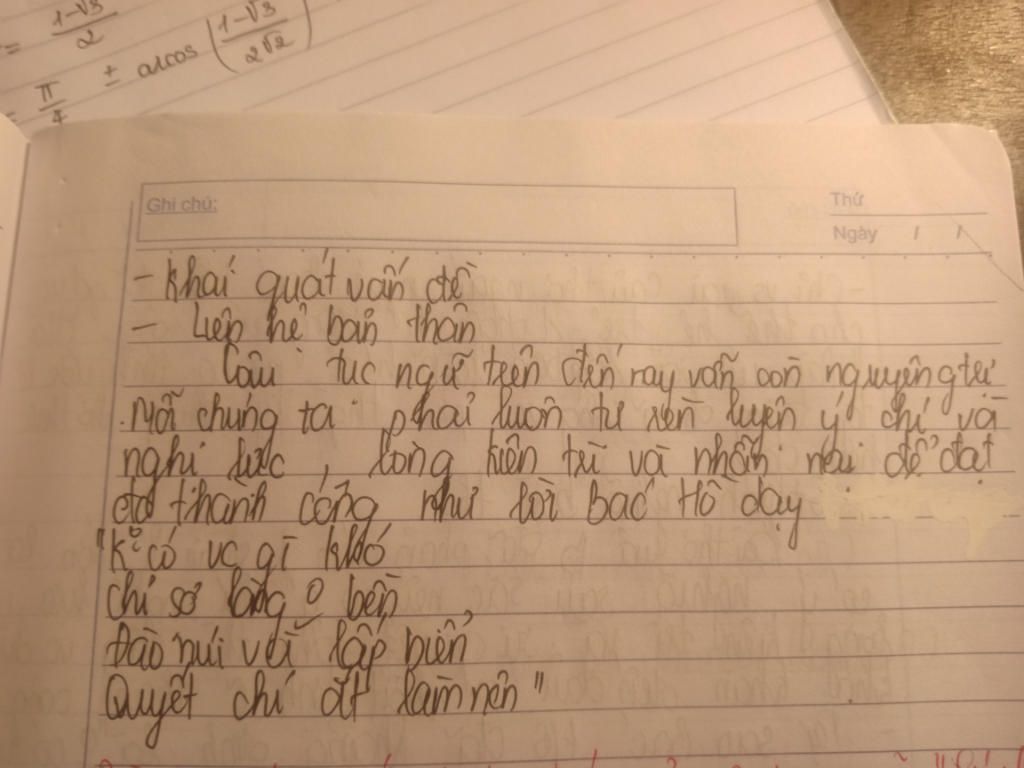 = 1-√3/2
= π/4 ± arccos (1-√3/2√2)
Ghi chú:
Thứ
Ngày / /
- Khái quát vấn đề
- Liên hệ bản thân
Câu tục ngữ trên đến nay vẫn còn nguyên giá
Mỗi chúng ta phải luôn tự rèn luyện ý chí và
nghị lực, lòng kiên trì và nhẫn nại để đạt
thành công như lời Bác Hồ dạy
"K° có vc gì khó
Chỉ sợ lòng o bền
Đào núi và lấp biển
Quyết chí ắt làm nên"